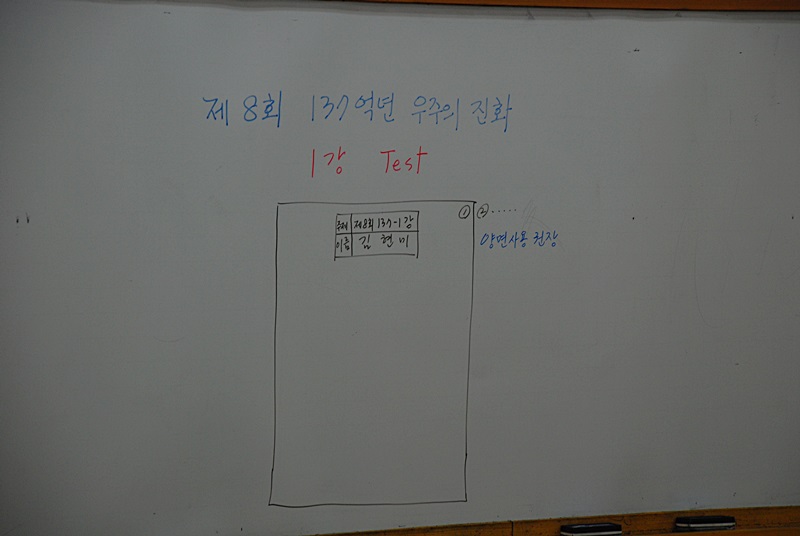 제 8회 137억년 우주의 진화
1강 Test
① ② .....
주제 제8회 137-1강
이름 김 현 미
양면사용 권장